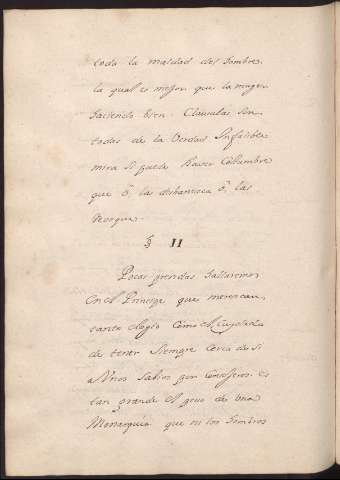 toda la maldad del Hombre
la qual es mejor que la muger
haciendo bien. Clausulas son
todas de la Verdad Infalible
mira si puede haver Calumbre
que ô, las desbanesca ô, las
§ II
Pocas prendas hallaremos
en el Principe que merescan
tanto elogio como el
de tener Siempre cerca de si
a Unos Sabios por Consejeros. es
tan grande el peso de una
Monarquia que ni los hombros